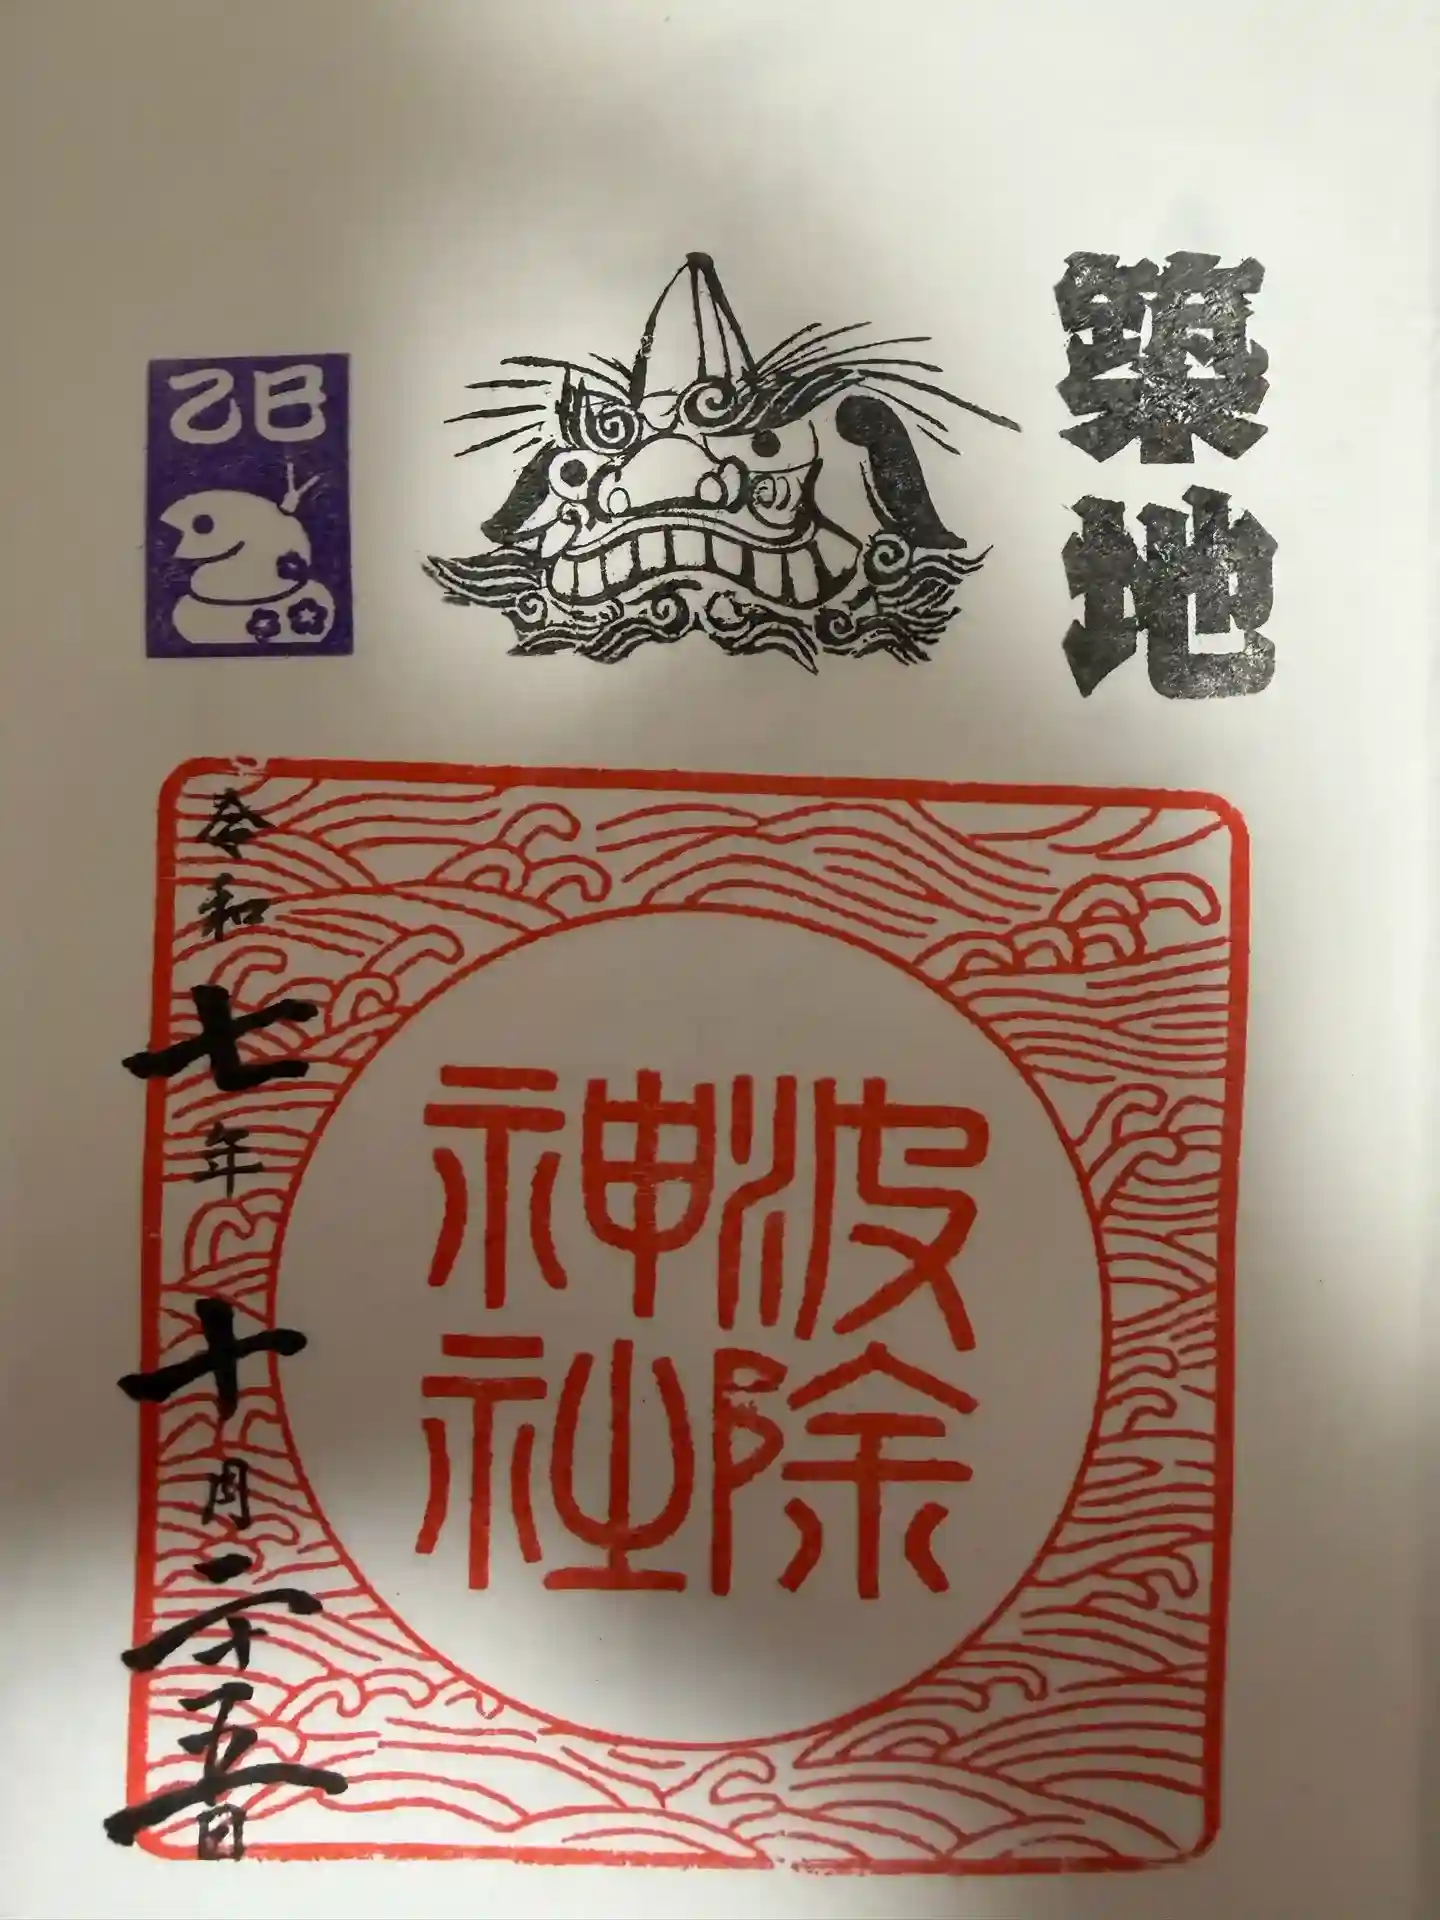 築地
乙巳
波除
神社
令和七年十月二十五日